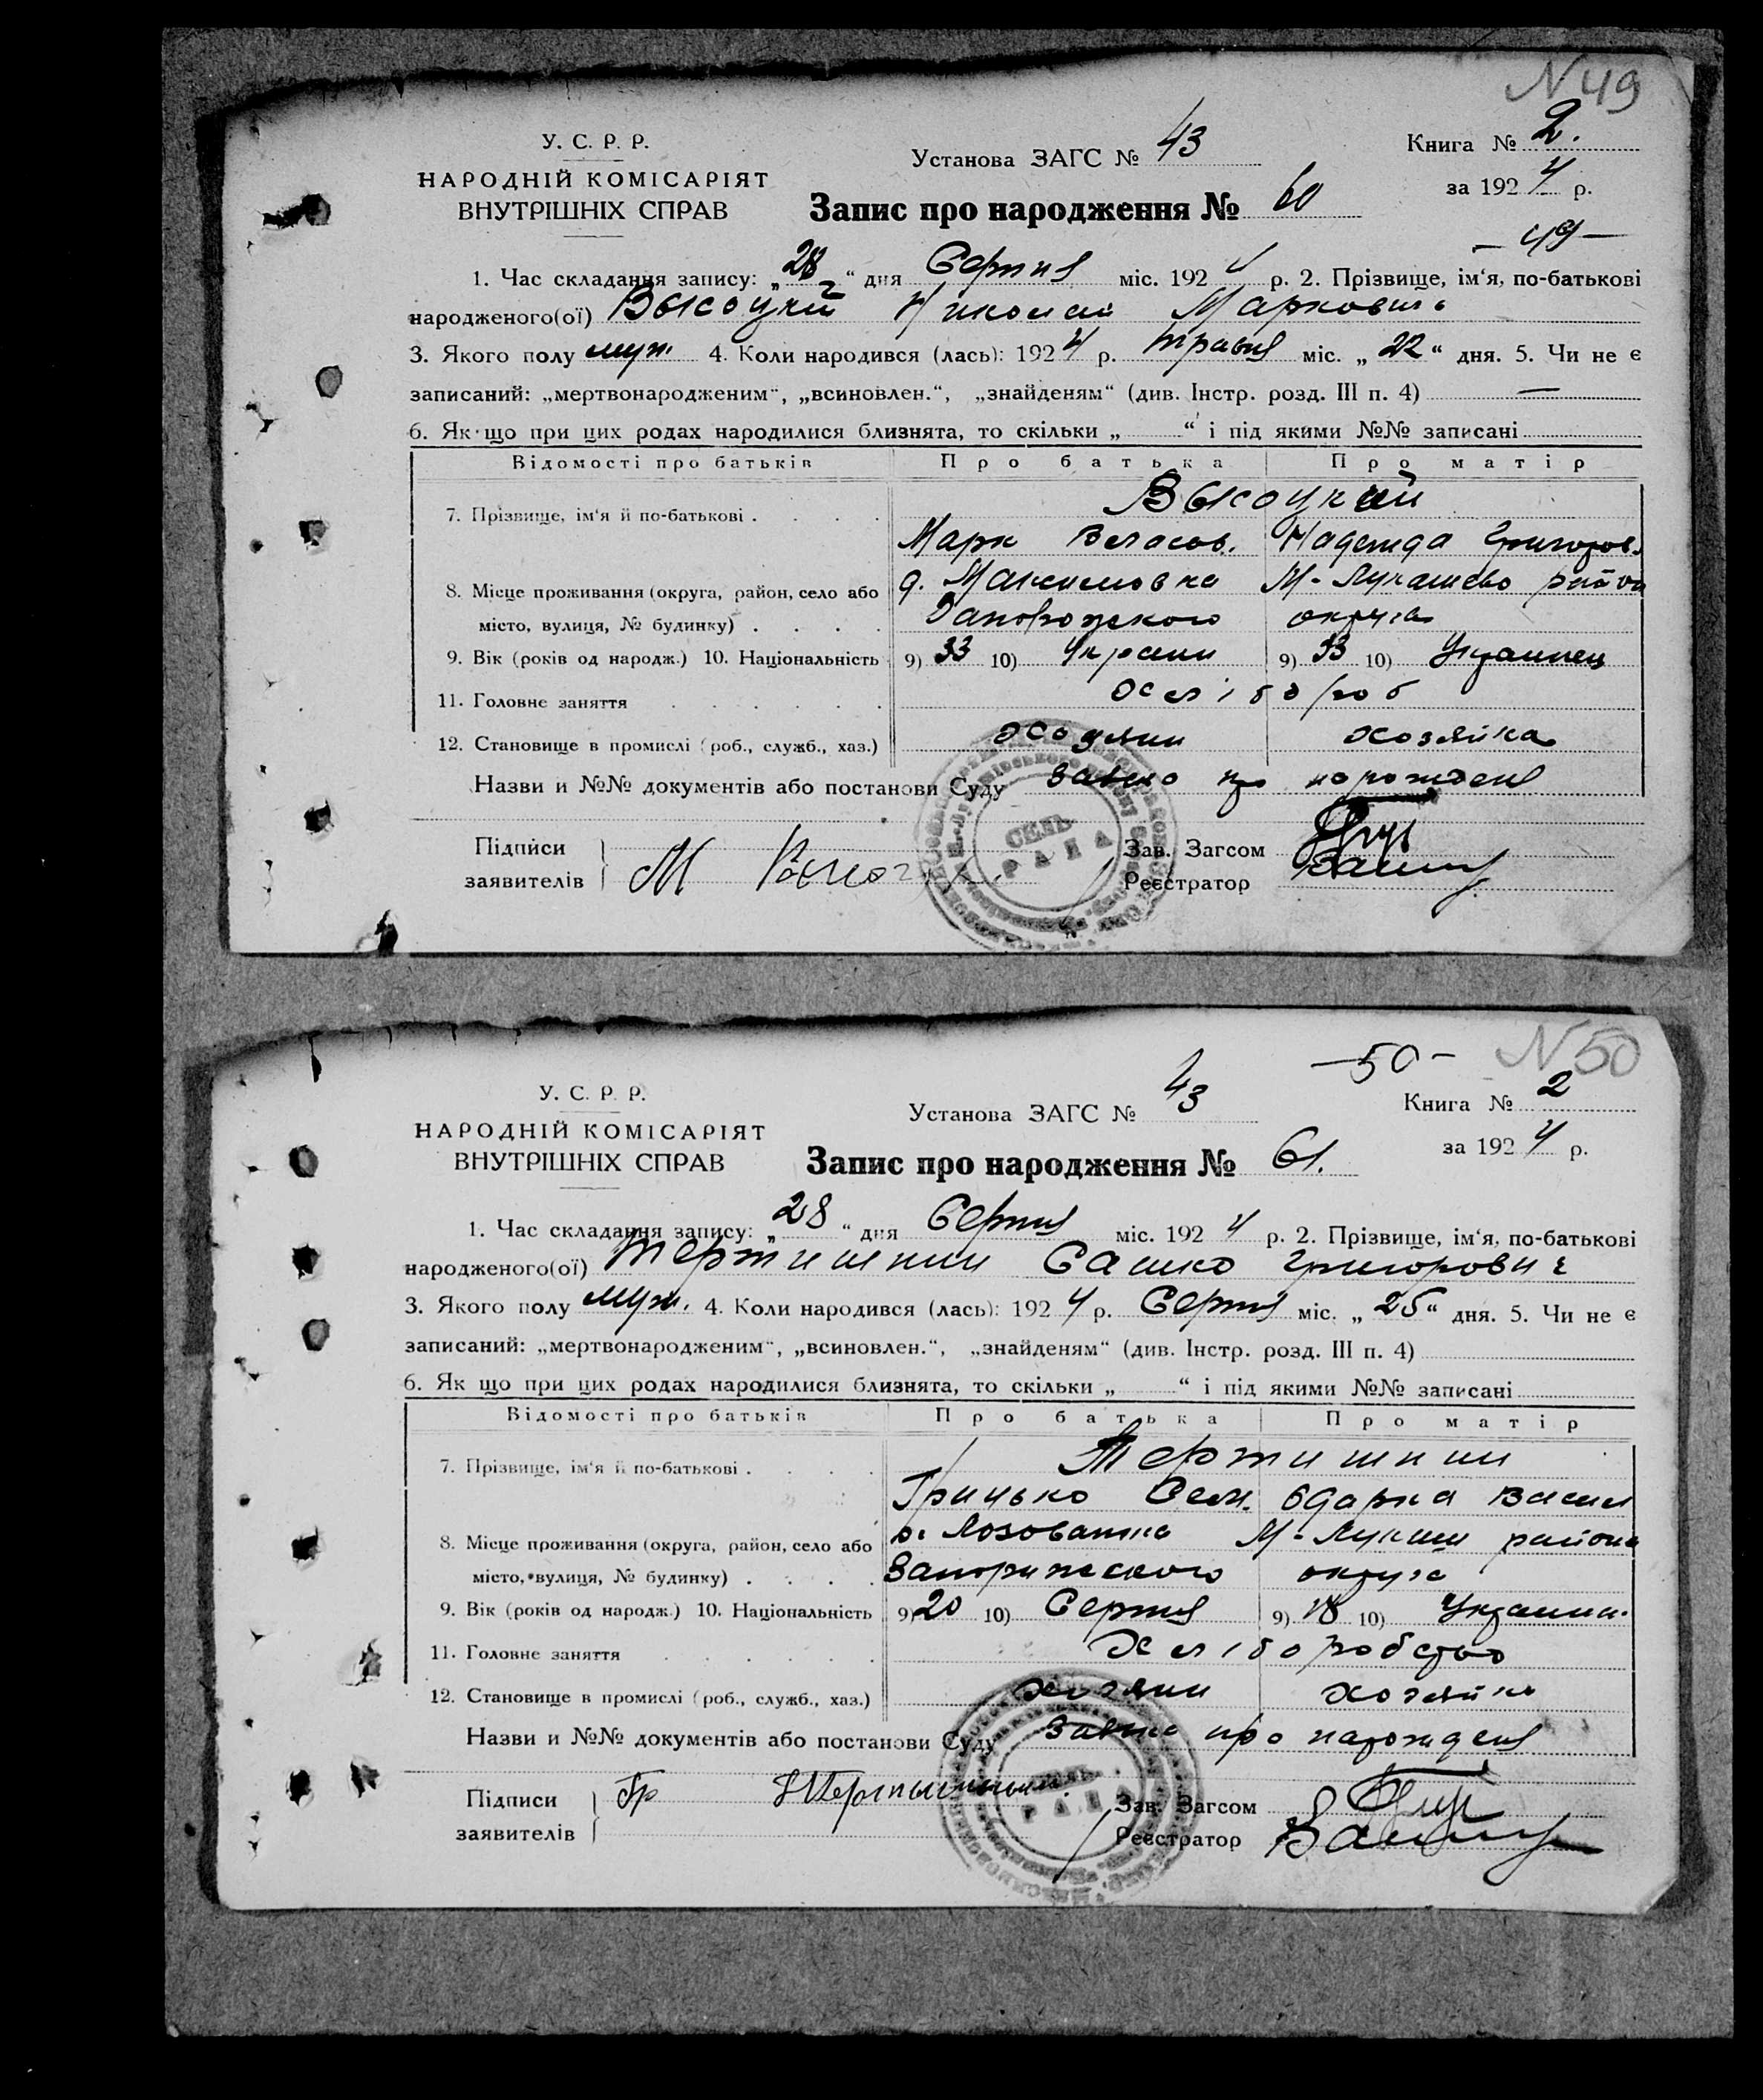 N 49
У. С. Р. Р.
НАРОДНІЙ КОМІСАРІЯТ
ВНУТРІШНІХ СПРАВ
Установа ЗАГС № 43
Книга № 2.
за 1924 р.
Запис про народження № 60
— 49 —
1. Час складання запису: „ 28 “ дня Серпня міс. 1924 р. 2. Прізвище, ім‘я, по-батькові
народженого(ої) Высоцкий Николай Маркович
3. Якого полу муж. 4. Коли народився (лась): 1924 р. травня міс. „ 22 “ дня. 5. Чи не є
записаний: „мертвонародженим“, „всиновлен.“, „знайденям“ (див. Інстр. розд. III п. 4) —
6. Як що при цих родах народилися близнята, то скільки „ “ і під якими №№ записані
Відомості про батьків Про батька Про матір
Высоцкий
7. Прізвище, ім‘я й по-батькові . . . .
Марк Власов. Надежда Григоров.
8. Місце проживання (округа, район, село або д. Максимовка М-Лукашево района
місто, вулиця, № будинку) . . . . Запорожского округа
9. Вік (років од народж.) 10. Національність 9) 33 10) Украин 9) 33 10) Украинец
11. Головне заняття . . . . . . хлібороб
12. Становище в промислі (роб., служб., хаз.) Хозяин хозяйка
Назви и №№ документів або постанови Суду заявка про народженя
СЕЛЬ
РАДА
Підписи
заявителів М
Зав. Загсом
Реєстратор
— 50 — N 50
У. С. Р. Р.
НАРОДНІЙ КОМІСАРІЯТ
ВНУТРІШНІХ СПРАВ
Установа ЗАГС № 43
Книга № 2
за 1924 р.
Запис про народження № 61.
1. Час складання запису: „ 28 “ дня Серпня міс. 1924 р. 2. Прізвище, ім‘я, по-батькові
народженого(ої) Тертишний Сашко Григорович
3. Якого полу муж. 4. Коли народився (лась): 1924 р. Серпня міс. „ 25 “ дня. 5. Чи не є
записаний: „мертвонародженим“, „всиновлен.“, „знайденям“ (див. Інстр. розд. III п. 4)
6. Як що при цих родах народилися близнята, то скільки „ “ і під якими №№ записані
Відомості про батьків Про батька Про матір
Тертишний
7. Прізвище, ім‘я й по-батькові . . . .
Грицько Сем. Одарка Васил
8. Місце проживання (округа, район, село або Лозоватка М-Лукаш района
місто, вулиця, № будинку) . . . . Запорижского округа
9. Вік (років од народж.) 10. Національність 9) 20 10) Серпня 9) 18 10) Украин.
11. Головне заняття . . . . . . Хліборобство
12. Становище в промислі (роб., служб., хаз.) хозяин хозяйка
Назви и №№ документів або постанови Суду заявка про народженя
РАДА
Підписи
заявителів Гр Тертышный
Зав. Загсом
Реєстратор